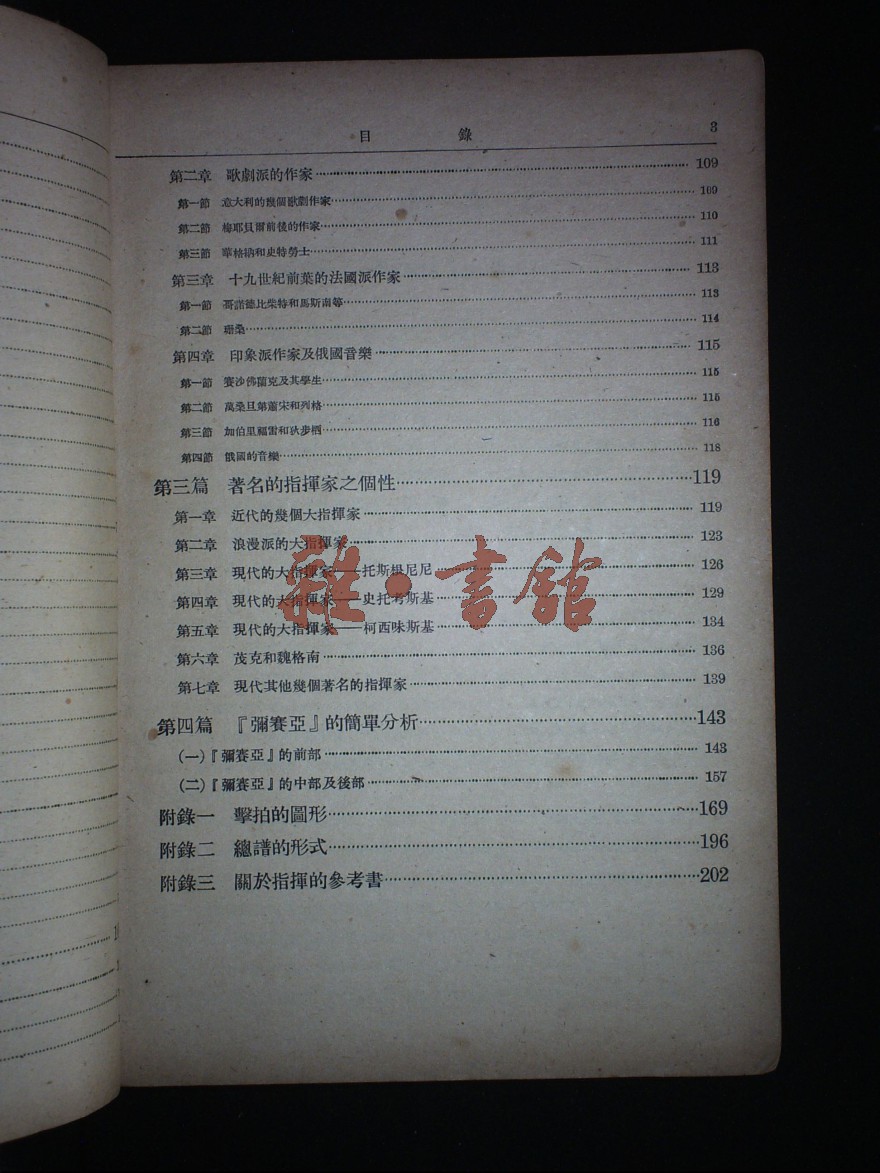 目 錄 3
第二章 歌劇派的作家 109
第一節 意大利的幾個歌劇作家 109
第二節 梅耶貝爾前後的作家 110
第三節 華格納和史特勞士 111
第三章 十九世紀前葉的法國派作家 113
第一節 哥諾德比柴特和馬斯南等 113
第二節 珊桑 114
第四章 印象派作家及俄國音樂 115
第一節 賽沙佛蘭克及其學生 115
第二節 萬桑旦第蕭宋和列格 115
第三節 加伯里福雷和狄步栖 116
第四節 俄國的音樂 118
第三篇 著名的指揮家之個性 119
第一章 近代的幾個大指揮家 119
第二章 浪漫派的大指揮家 123
第三章 現代的大指揮家——托斯根尼尼 126
第四章 現代的大指揮家——史托考斯基 129
第五章 現代的大指揮家——柯西味斯基 134
第六章 茂克和魏格南 136
第七章 現代其他幾個著名的指揮家 139
第四篇 『彌賽亞』的簡單分析 143
(一)『彌賽亞』的前部 143
(二)『彌賽亞』的中部及後部 157
附錄一 擊拍的圖形 169
附錄二 總譜的形式 196
附錄三 關於指揮的參考書 202
雜·書館